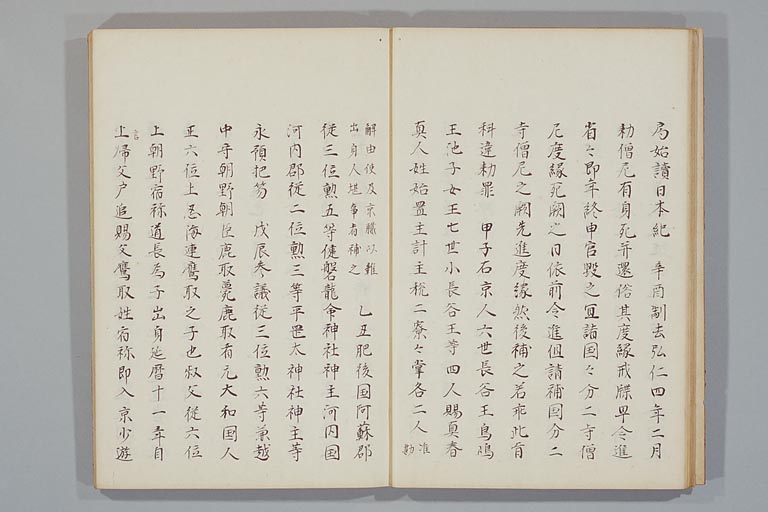 局始讀日本紀　辛酉制去弘仁四年二月
勅僧尼有身死并還俗其度縁戒牒早令進
省々即年終申官毀之宜諸国々分二寺僧
尼度縁死闕之日依前令進但請補国分二
寺僧尼之闕先進度縁然後補之若乖此旨
科違勅罪　甲子右京人六世長谷王鳥鳴
王池子女王七世小長谷王等四人賜真春
真人姓始置主計主税二寮々掌各二人准勘
解由使及京職以雜
出身人堪事者補之　乙丑肥後国阿蘇郡
従三位勲五等健磐龍命神社神主河内国
河内郡従二位勲三等平岡大神社神主等
永預把笏　戊辰参議従三位勲六等兼越
中守朝野朝臣鹿取薨鹿取者元大和国人
正六位上忍海連鷹取之子也叔父従六位
上朝野宿祢道長為子出身延暦十一年自
言
上帰父戸追賜父鷹取姓宿祢即入京少遊